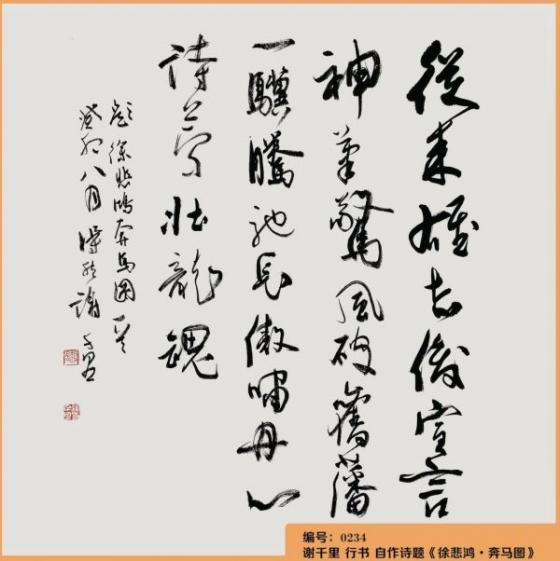 從来雄志宣言
神筆驚風破舊藩
一驥騰馳長傲嘯丹心
詩夢壯龍魂
題徐悲鴻奔馬圖一
癸卯八月 謝千里
编号：0234
谢千里 行书 自作诗题《徐悲鸿·奔马图》